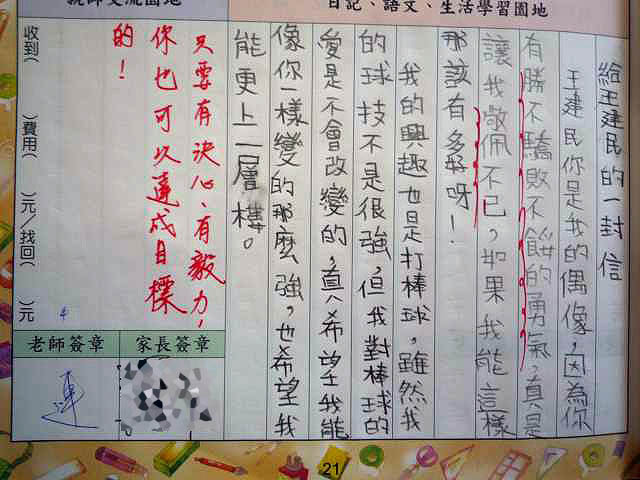 日記、語文、生活學習園地
給王建民的一封信
王建民你是我的偶像，因為你
有勝不驕敗不餒的勇氣，真是
讓我敬佩不已，如果我能這樣
那該有多好呀！
我的興趣也是打棒球，雖然我
的球技不是很強，但我對棒球的
愛是不會改變的，真希望我能
像你一樣變的那麼強，也希望我
能更上一層樓。
親師交流園地
只要有決心、有毅力，
你也可以達成目標
的！
收到（ ）費用（ ）元／找回（ ）元
家長簽章
老師簽章
連
21